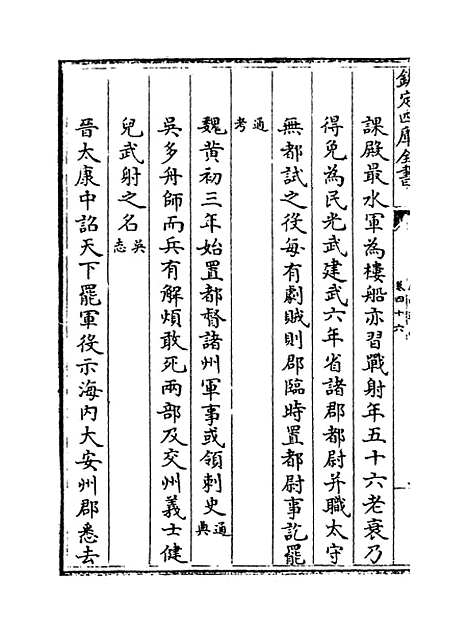 欽定四庫全書
卷四十六
課殿最水軍為樓船亦習戰射年五十六老衰乃
得免為民光武建武六年省諸郡都尉并職太守
無都試之役每有劇賊則郡臨時置都尉事訖罷
通考
魏黃初三年始置都督諸州軍事或領刺史通典
吳多舟師而兵有解煩敢死兩部及交州義士健
兒武射之名吳志
晉太康中詔天下罷軍役示海內大安州郡悉去